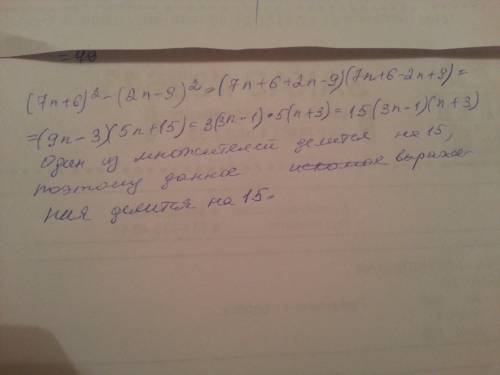 (7n+6)²-(2n-9)²=(7n+6+2n-9)(7n+6-2n+9)=
=(9n-3)(5n+15)=3(3n-1)·5(n+3)=15(3n-1)(n+3)
Один из множителей делится на 15,
поэтому данное искомое выраже-
ния делится на 15.